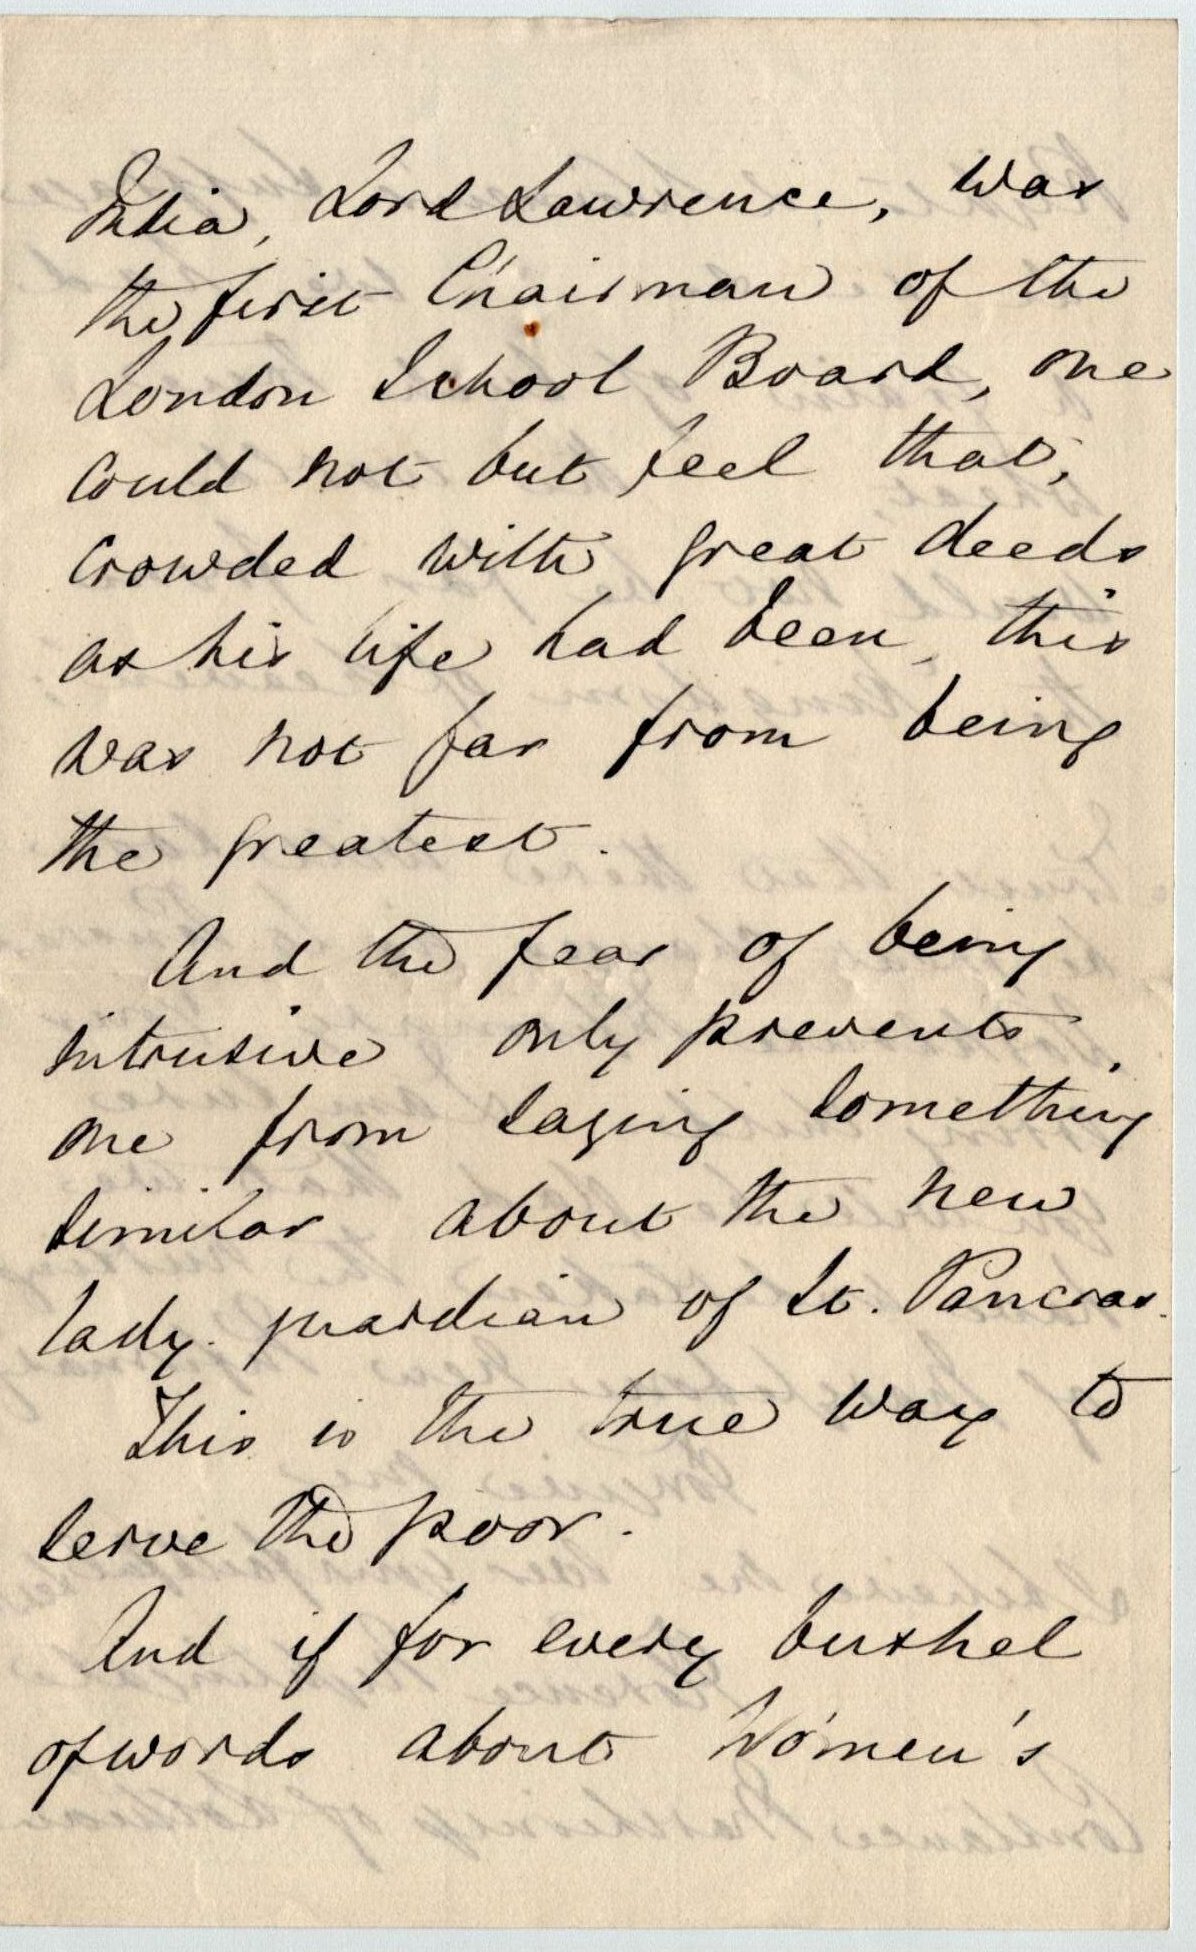 India, Lord Lawrence, was
the first Chairman of the
London School Board, one
could not but feel that,
crowded with great deeds
as his life had been, this
was not far from being
the greatest.
And the fear of being
intrusive only prevents
one from saying something
similar about the new
lady-guardian of St. Pancras.
This is the true way to
serve the poor.
And if for every bushel
of words about Women's